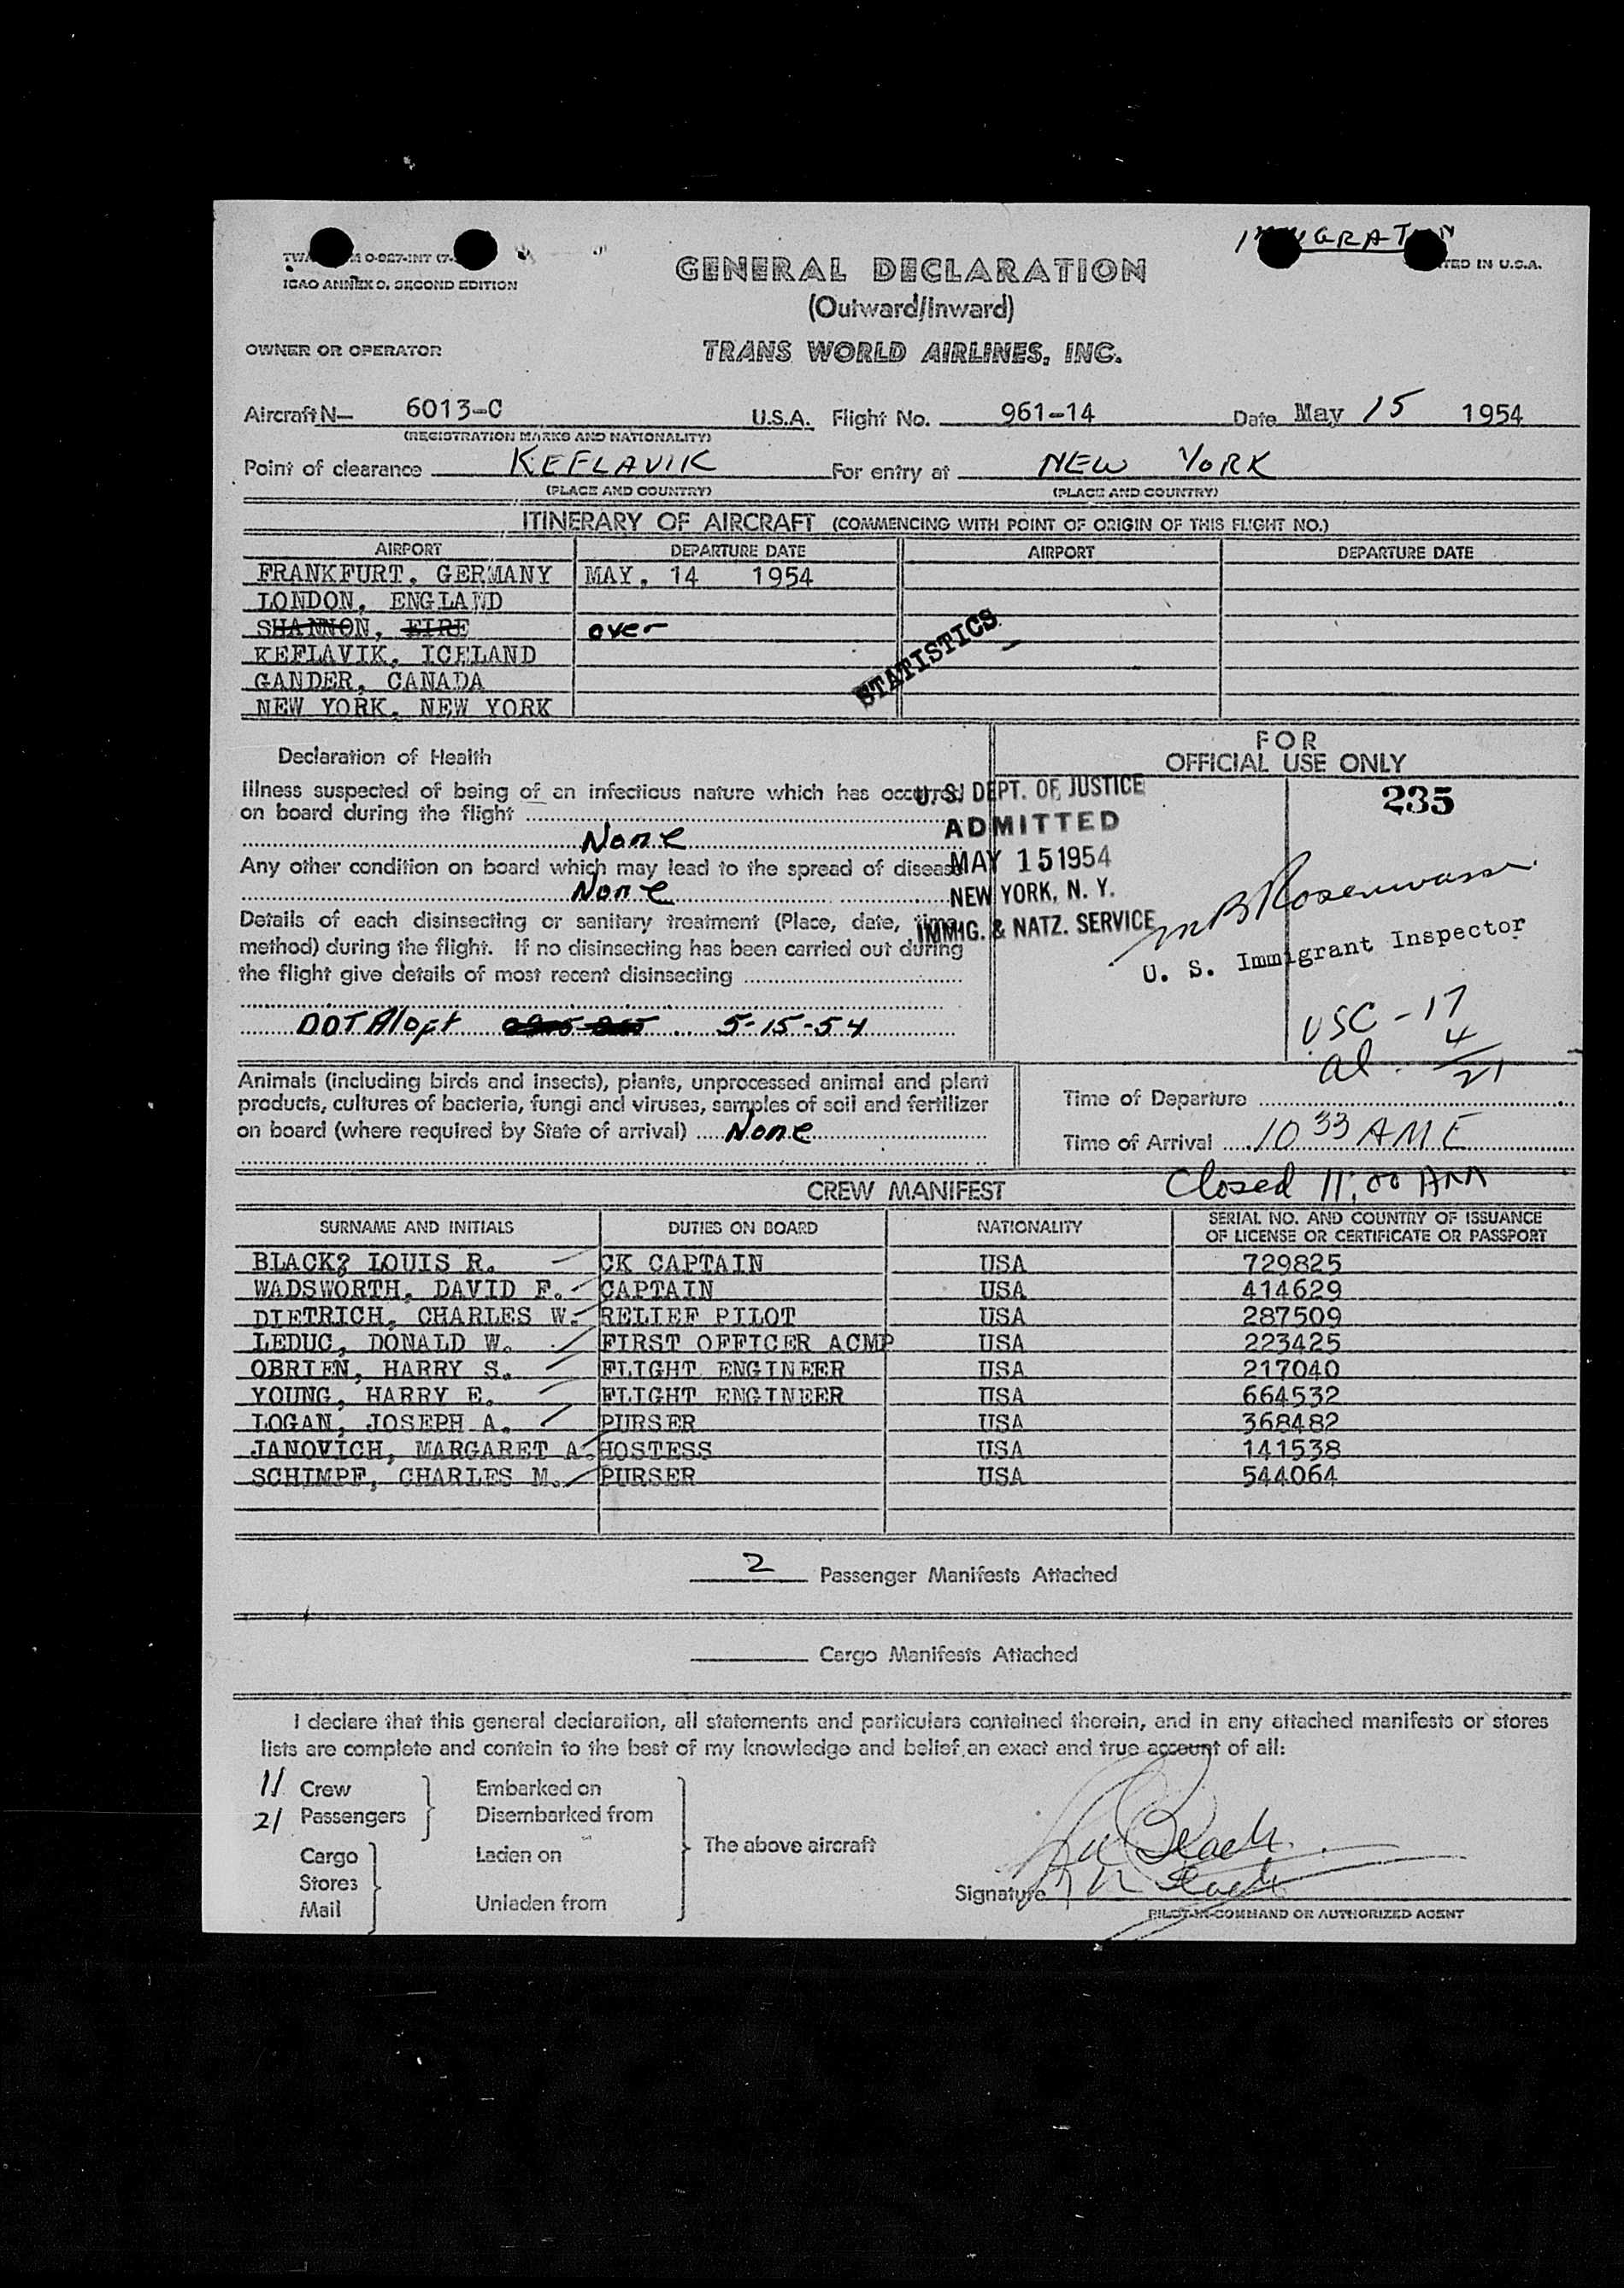 IMMIGRATION
ICAO ANNEX 9, SECOND EDITION
GENERAL DECLARATION
(Outward/Inward)
OWNER OR OPERATOR TRANS WORLD AIRLINES, INC.
Aircraft N— 6013-C U.S.A. Flight No. 961-14 Date May 15 1954
(REGISTRATION MARKS AND NATIONALITY)
Point of clearance KEFLAVIK For entry at NEW YORK
(PLACE AND COUNTRY) (PLACE AND COUNTRY)
ITINERARY OF AIRCRAFT (COMMENCING WITH POINT OF ORIGIN OF THIS FLIGHT NO.)
AIRPORT DEPARTURE DATE AIRPORT DEPARTURE DATE
FRANKFURT, GERMANY MAY, 14 1954
LONDON, ENGLAND
SHANNON, EIRE over
KEFLAVIK, ICELAND
GANDER, CANADA
NEW YORK, NEW YORK
STATISTICS
Declaration of Health
Illness suspected of being of an infectious nature which has occurred
on board during the flight
None
Any other condition on board which may lead to the spread of disease
None
Details of each disinsecting or sanitary treatment (Place, date, time,
method) during the flight. If no disinsecting has been carried out during
the flight give details of most recent disinsecting
5-15-54
FOR
OFFICIAL USE ONLY
235
U. S. DEPT. OF JUSTICE
ADMITTED
MAY 15 1954
NEW YORK, N. Y.
IMMIG. & NATZ. SERVICE
U. S. Immigrant Inspector
USC - 17
al 4
21
Animals (including birds and insects), plants, unprocessed animal and plant
products, cultures of bacteria, fungi and viruses, samples of soil and fertilizer
on board (where required by State of arrival) None
Time of Departure
Time of Arrival 10 33 AM E
Closed 11:00 AM
CREW MANIFEST
SURNAME AND INITIALS DUTIES ON BOARD NATIONALITY SERIAL NO. AND COUNTRY OF ISSUANCE
OF LICENSE OR CERTIFICATE OR PASSPORT
BLACK? LOUIS R. CK CAPTAIN USA 729825
WADSWORTH, DAVID F. CAPTAIN USA 414629
DIETRICH, CHARLES W. RELIEF PILOT USA 287509
LEDUC, DONALD W. FIRST OFFICER ACMP USA 223425
OBRIEN, HARRY S. FLIGHT ENGINEER USA 217040
YOUNG, HARRY E. FLIGHT ENGINEER USA 664532
LOGAN, JOSEPH A. PURSER USA 368482
JANOVICH, MARGARET A. HOSTESS USA 141538
SCHIMPF, CHARLES M. PURSER USA 544064
2 Passenger Manifests Attached
Cargo Manifests Attached
I declare that this general declaration, all statements and particulars contained therein, and in any attached manifests or stores
lists are complete and contain to the best of my knowledge and belief an exact and true account of all:
11 Crew Embarked on
21 Passengers Disembarked from
The above aircraft
Cargo Laden on
Stores
Mail Unladen from
Signature
PILOT-IN-COMMAND OR AUTHORIZED AGENT